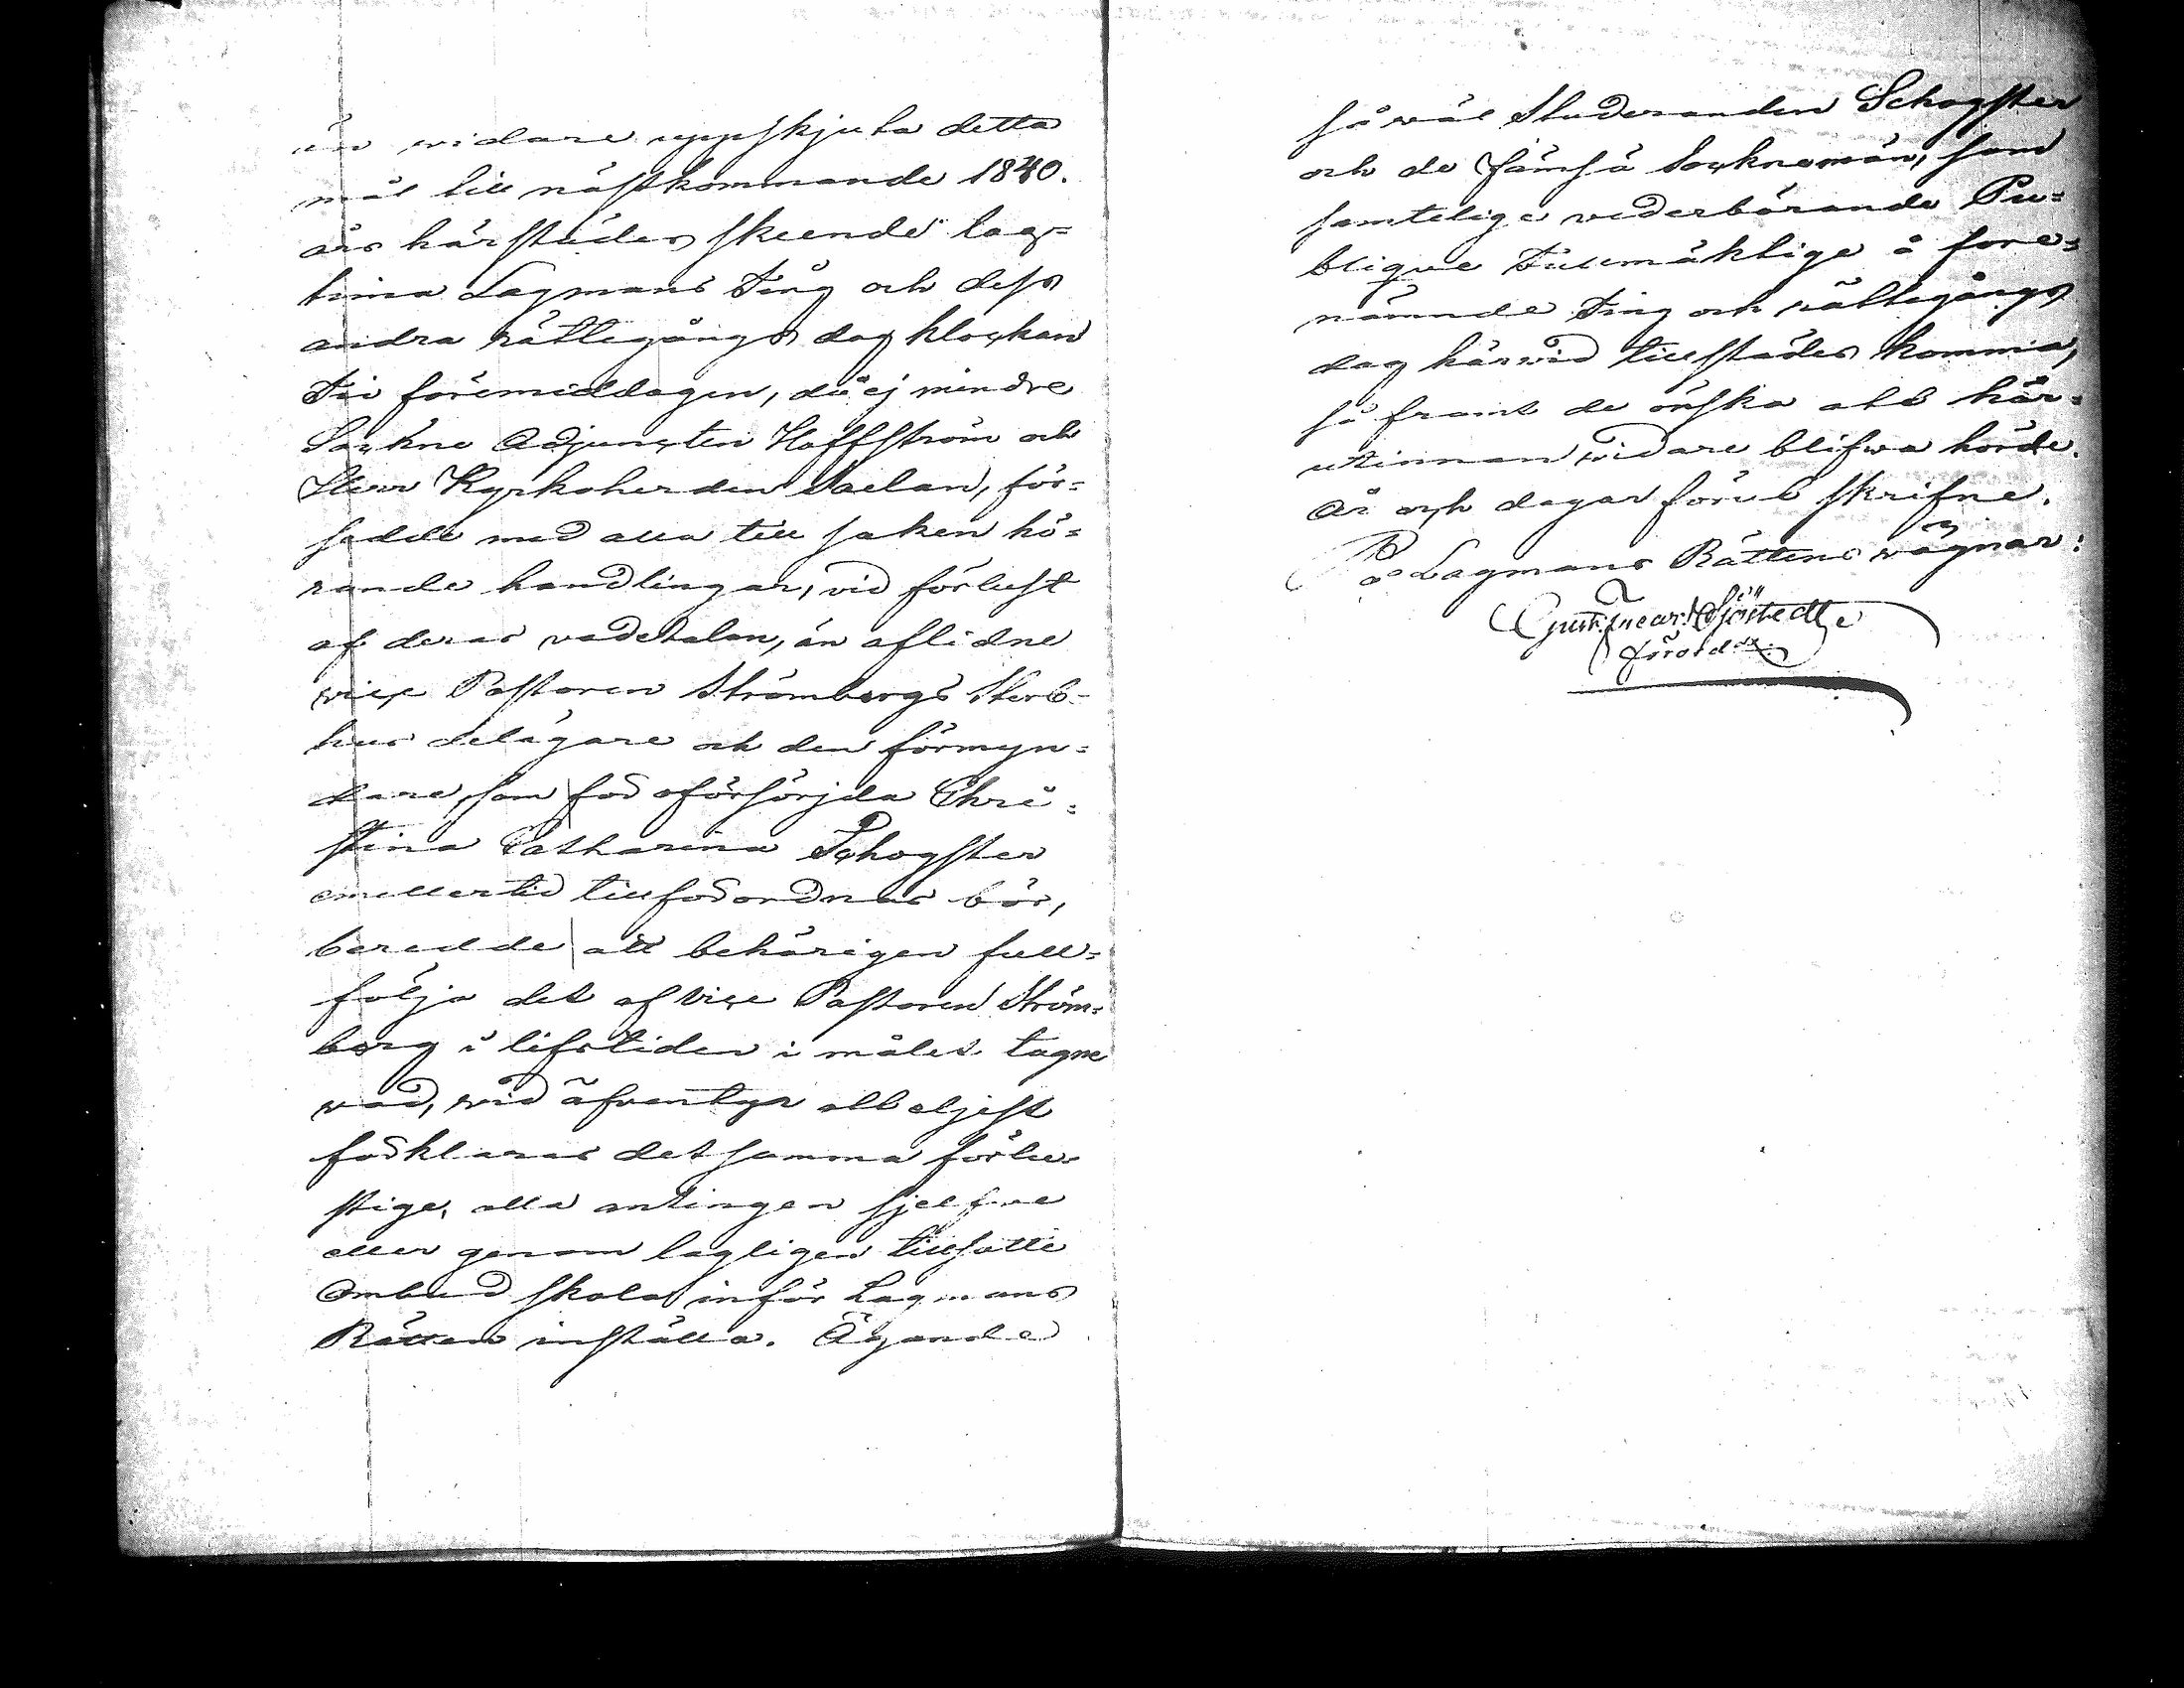 än widare uppskjuta detta
mål till nästkommande 1840.
års härstädes skeende lag-
tima Lagmans Ting och dess
andra rättegångs dag klockan
Tio föremiddagen, då ej mindre
Sockne Adjuncten Hoffström och
Herr Kyrkoherden Saelan, för-
sedde med alla till saken hö-
rande handlingar, vid förlust
af deras vadetalan, än aflidne
vice Pastoren Strömbergs Sterb-
hus delägare och den förmyn-
dare, som för oförsörjda Chri-
stina Catharina Schogster
emellertid tillförordnas bör,
beredde att behörigen full-
följa det af Vice Pastoren Ström-
berg i lifstiden i målet tagne
wad, wid äfventyr att eljest
förklaras det samma förlu-
stige, alla antingen sjelfve
eller genom lagligen tillsatte
Ombud skola inför Lagmans
Rätten inställa. Ägande
så wäl Studeranden Schogster
och de Jämsä Socknemän, som
samtelige wederbörande Pu-
blique Fullmäktige å fore-
nämnde Ting och rättegångs
dag härwid tillstädes komma,
så framt de önska att här-
utinnan widare blifwa hörde.
År och dagar förut skrifne.
På Lagmans Rättens wägnar:
Sjöstedt
förord